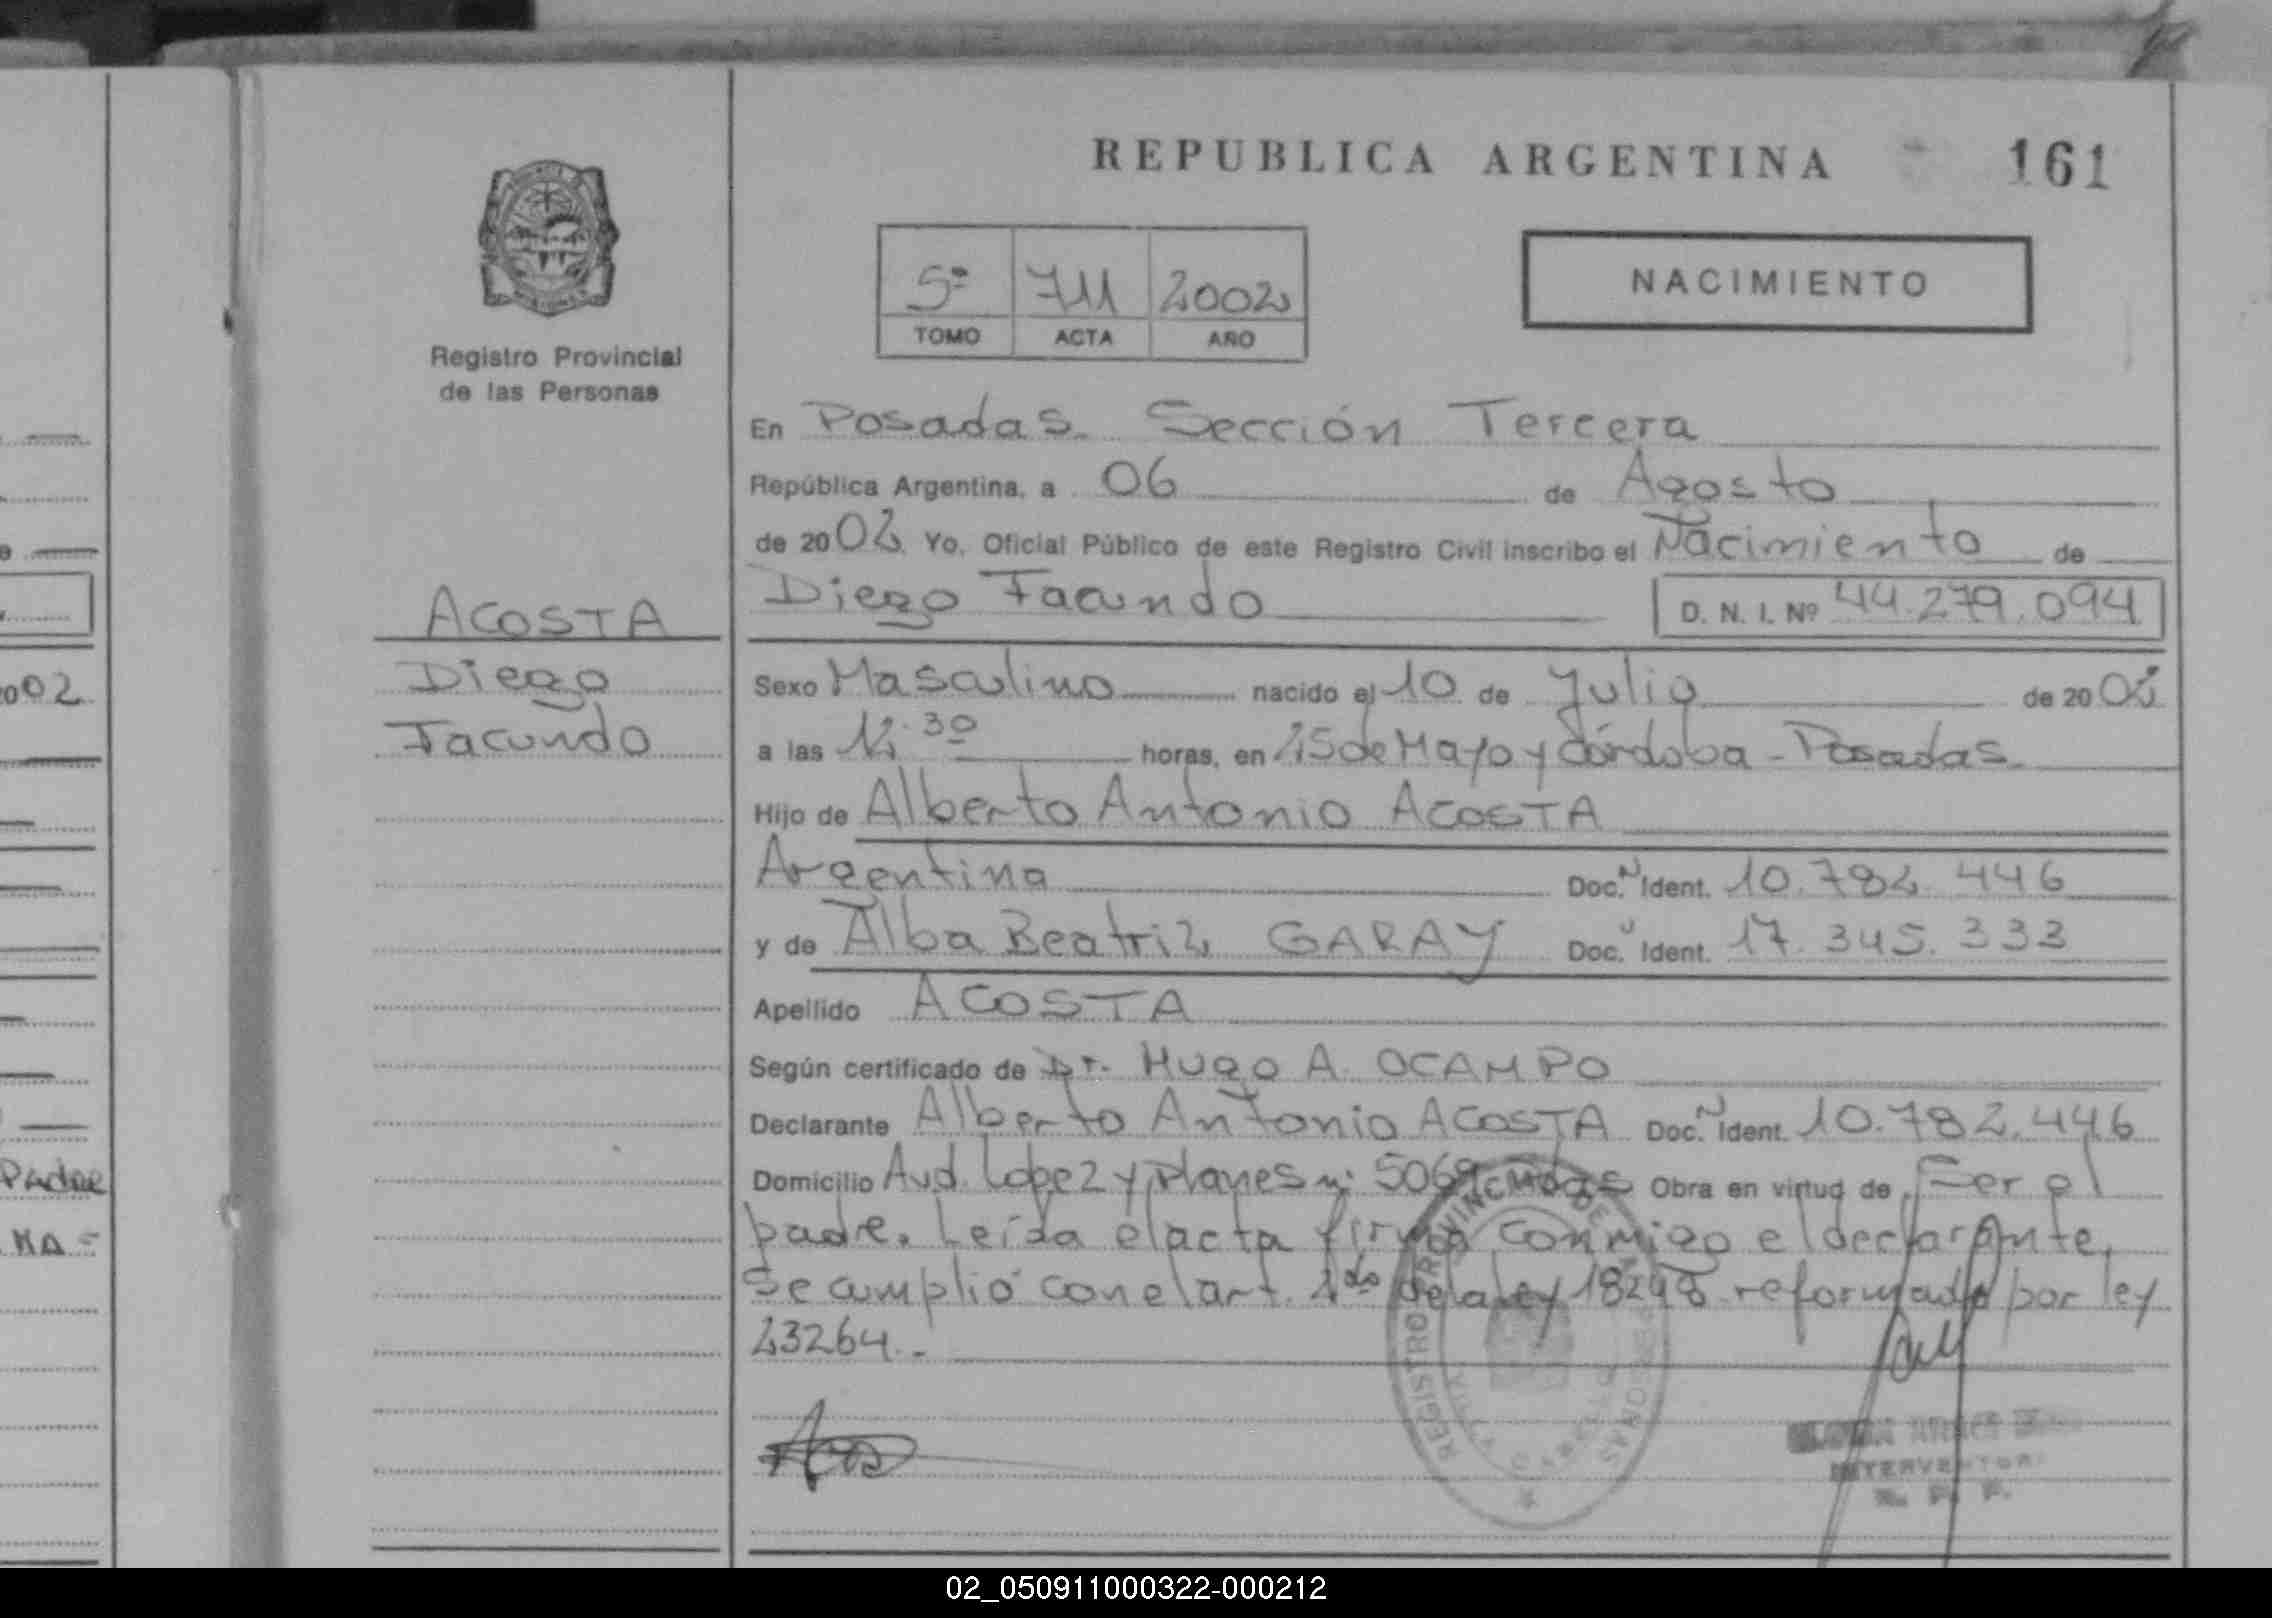 REPUBLICA ARGENTINA 161
5º 711 2002
TOMO ACTA AÑO
NACIMIENTO
Registro Provincial
de las Personas
En Posadas. Sección Tercera
República Argentina, a 06 de Agosto
de 2002 Yo, Oficial Público de este Registro Civil inscribo el Nacimiento de
Diego Facundo D. N. I. Nº 44.279.094
ACOSTA
Diego
Facundo
Sexo Masculino nacido el 10 de Julio de 2002
a las 12.30 horas, en 25 de Mayo y Córdoba - Posadas.
Hijo de Alberto Antonio ACOSTA
Argentina Doc. N Ident. 10.782.446
y de Alba Beatriz GARAY Doc. Ident. 17.345.333
Apellido ACOSTA
Según certificado de Dr. HUGO A. OCAMPO
Declarante Alberto Antonio ACOSTA Doc. N Ident. 10.782.446
Domicilio Avd. Lopez y Planes nº 5069 Obra en virtud de Ser el
padre. Leída el acta firma conmigo el declarante,
Se cumplió con el art. 2do de la ley 18248 reformado por ley
23264.-
REGISTRO PROVINCIAL DE LAS PERSONAS
INTERVENTORA
R. P. P.
2002
Padre
02_050911000322-000212